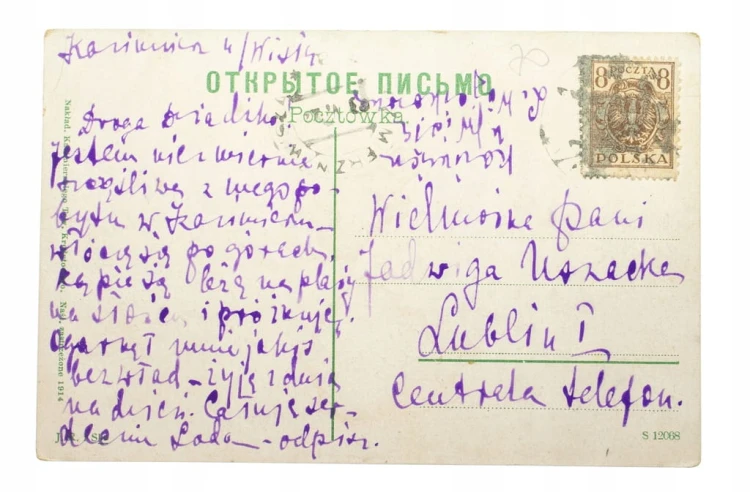 Kazimierz n/Wisłą
ОТКРЫТОЕ ПИСЬМО
Pocztówka
8 POCZTA 8
POLSKA
Droga
Jestem niezmiernie
szczęśliwa z mego po-
bytu w Kazimierzu -
włóczę się po górach,
kąpię się leżę na plaży
na słońcu i próżnuję.
Ogarnął mnie jakiś
bezwład - żyję z dnia
na dzień. Całuję ser-
decznie Loda - odpisz.
Wielmożna Pani
Jadwiga Uszacka
Lublin I
Centrala telefon.
Nakł. zastrzeżone 1914
S 12068